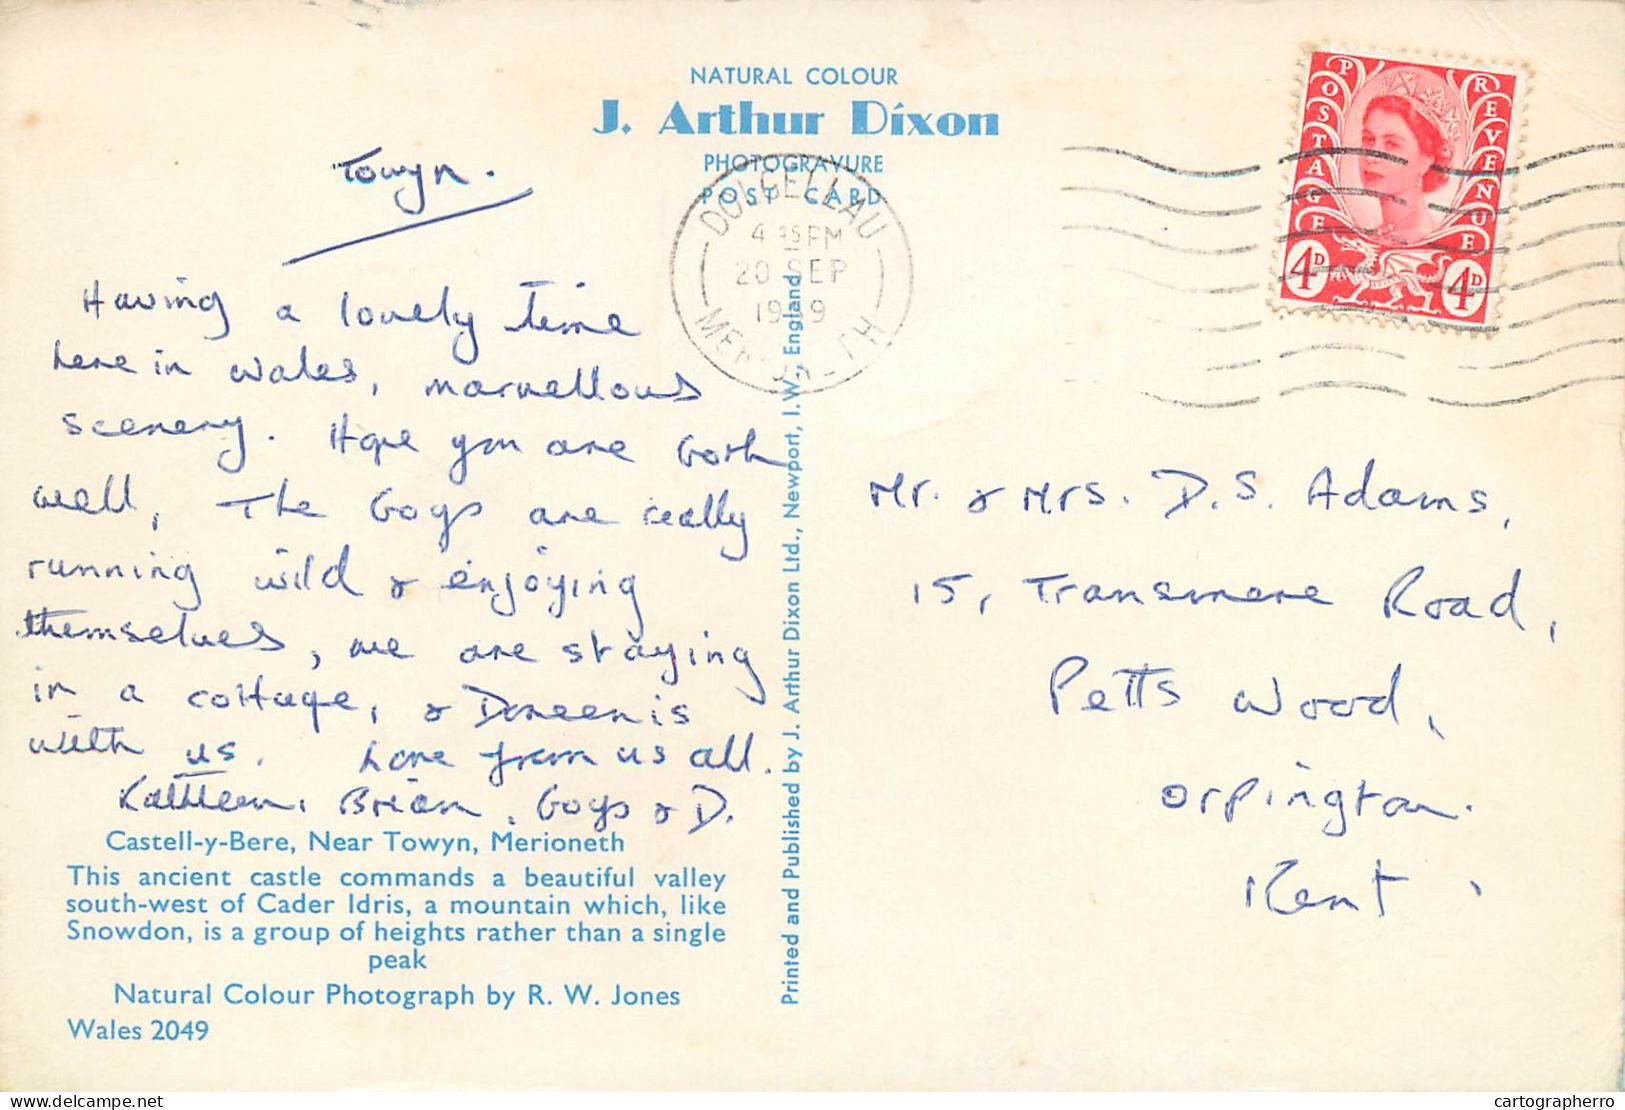 NATURAL COLOUR
J. Arthur Dixon
PHOTOGRAVURE
POST CARD
DOLGELLAU
4 15 PM
20 SEP
19 9
POSTAGE
REVENUE
4D
4D
Towyn.
Having a lovely time
here in Wales, marvellous
scenery. Hope you are both
well, The boys are really
running wild & enjoying
themselves, we are staying
in a cottage, & Doreen is
with us. Love from us all.
Kathleen, Brian, boys & D.
Castell-y-Bere, Near Towyn, Merioneth
This ancient castle commands a beautiful valley
south-west of Cader Idris, a mountain which, like
Snowdon, is a group of heights rather than a single
peak
Natural Colour Photograph by R. W. Jones
Wales 2049
Printed and Published by J. Arthur Dixon Ltd., Newport, I.W., England
Mr. & Mrs. D.S. Adams,
15, Transmere Road,
Petts Wood,
Orpington.
Kent.
delcampe.net
cartographerro